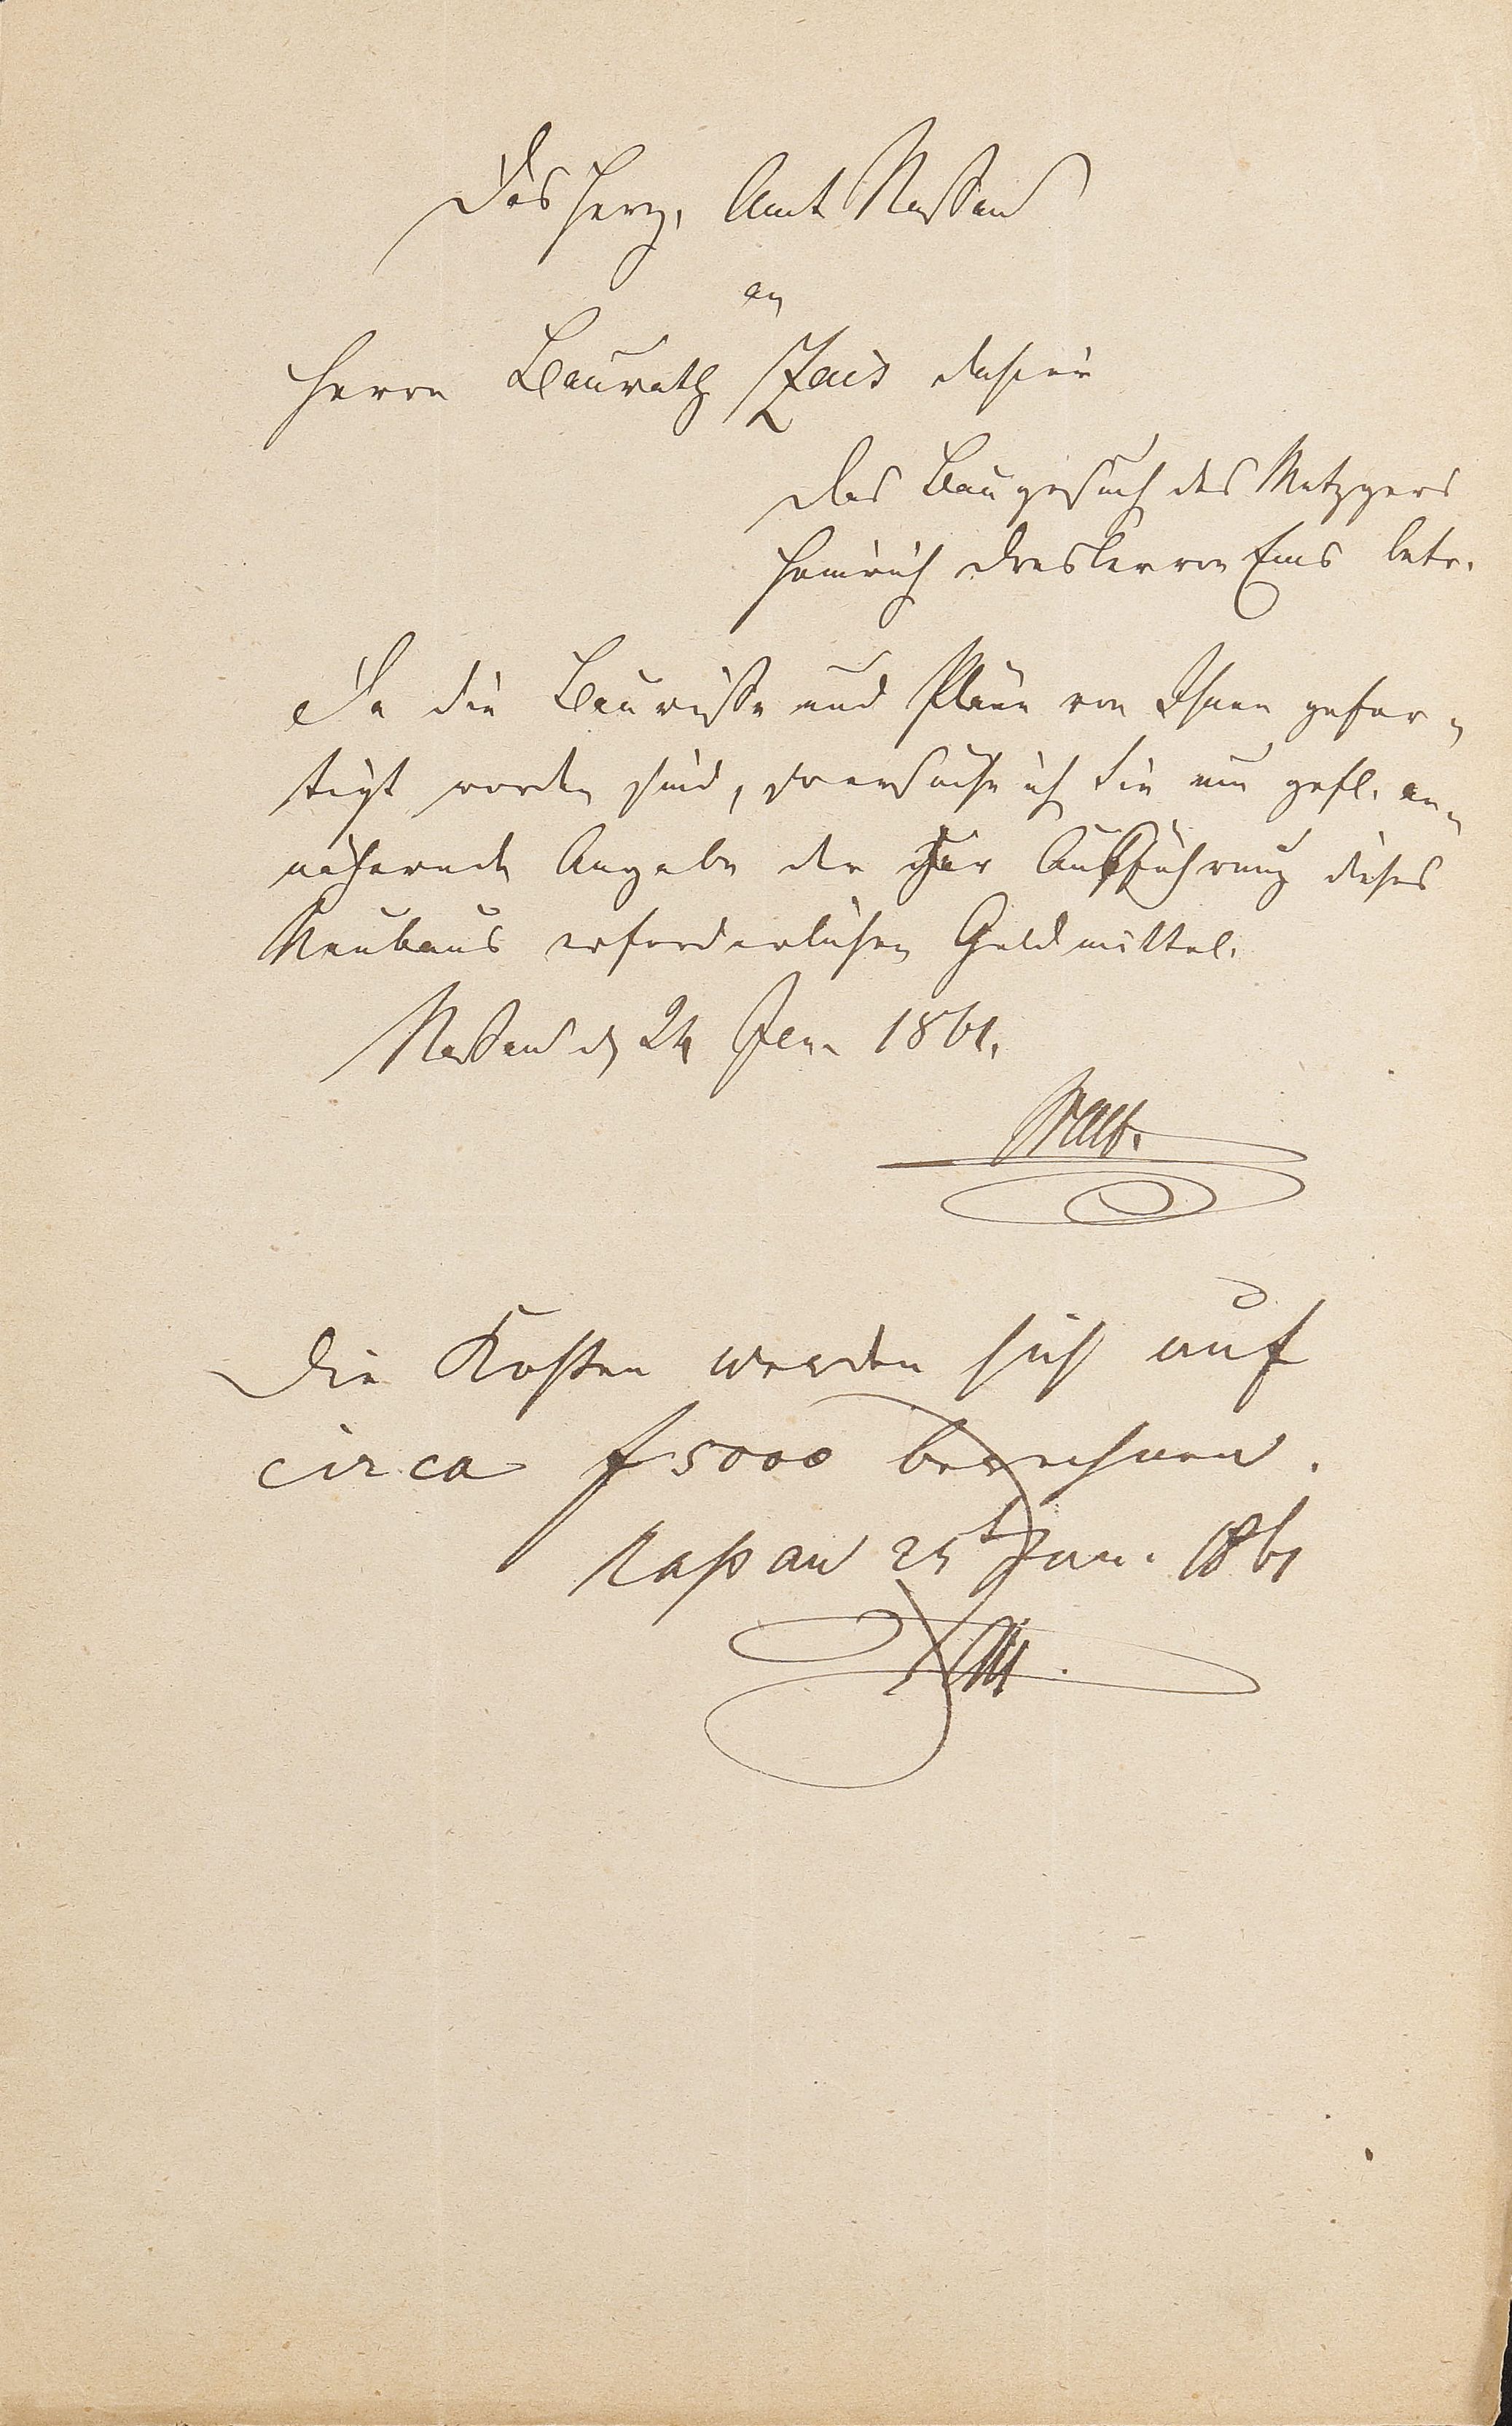 Das Herz. Amt Nassau
an
Herrn Baurath Zais dahier
Das Baugesuch des Metzgers
Heinrich Dresler von Ems betr.
Da die Baurisse und Pläne von Ihnen gefer-
tigt worden sind, so ersuche ich Sie um gefl. an-
nähernde Angabe der zur Ausführung dieses
Neubaus erforderlichen Geldmittel.
Nassau d 24 Jan. 1861.
Die Kosten werden sich auf
circa f 5000 berechnen.
Nassau 25t Jan. 1861